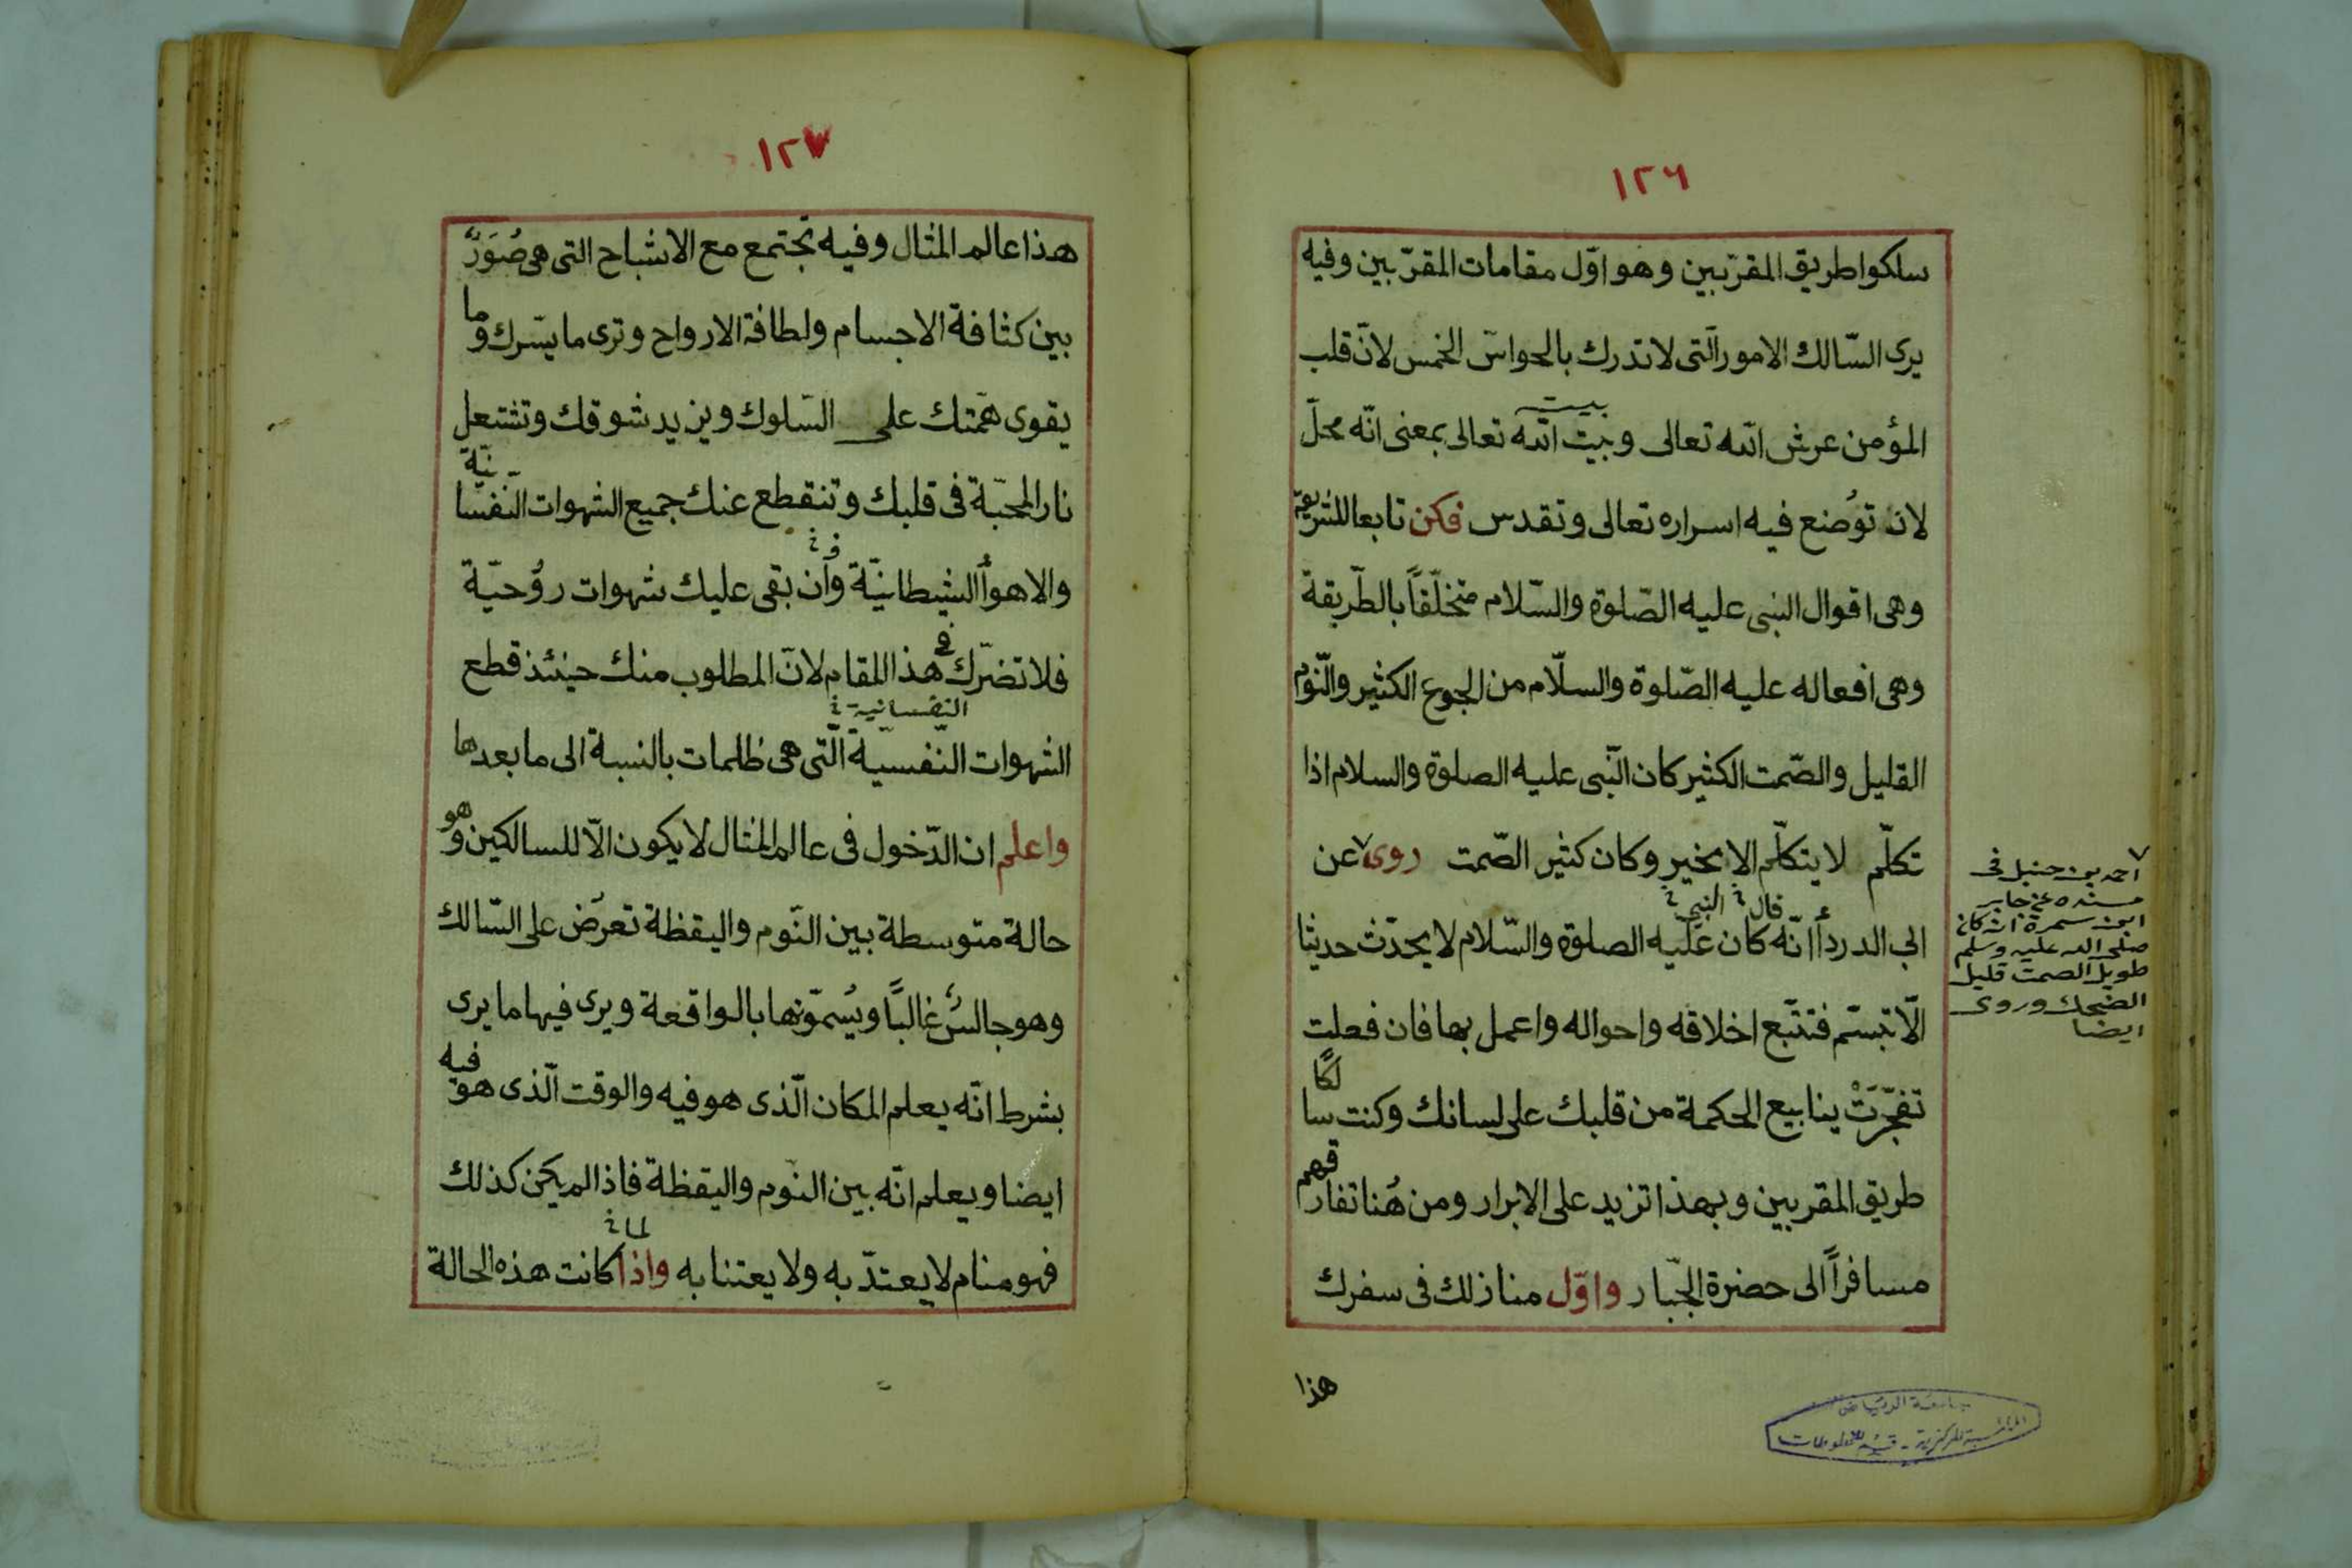 ١٢٦
سلكوا طريق المقرّبين وهو اوّل مقامات المقرّبين وفيه
يرى السّالك الامور الّتى لا تدرك بالحواسّ الخمس لانّ قلب
بيت
المؤمن عرش الله تعالى وبيت الله تعالى بمعنى انّه محلّ
لان توُضع فيه اسراره تعالى وتقدس فكن تابعا للشريعة
وهى اقوال النبى عليه الصّلوة والسّلام متخلّقاً بالطّريقة
وهى افعاله عليه الصّلوة والسلّام من الجوع الكثير والنّوم
القليل والصّمت الكثير كان النّبى عليه الصلوة والسلام اذا
تكلّم لا يتكلّم الا بخير وكان كثير الصّمت روى عن
قال النبى
ابى الدرداء انّه كان عليه الصلوة والسّلام لا يحدّث حديثا
الّا تبسّم فتتّبع اخلاقه واحواله واعمل بها فان فعلت
تفجّرَتْ ينابيع الحكمة من قلبك على لسانك وكنت سالكًا
طريق المقربين وبهذا تزيد على الابرار ومن هُنا تفارقهم
مسافراً الى حضرة الجّبار واوّل منازلك فى سفرك
هذا
احمد بن حنبل فى
مسنده عن جابر
ابن سمرة انه كان
صلى الله عليه وسلم
طويل الصمت قليل
الضحك وروى
ايضا
جامعة الرياض
المكتبة المركزية - قسم المخطوطات
١٢٧
هذا عالم المثال وفيه تجتمع مع الاشباح التى هى صُوَرٌ
بين كثافة الاجسام ولطافة الارواح وترى ما يسّرك وما
يقوى همّتك على السّلوك ويزيد شوقك وتشتعل
نار المحبّة فى قلبك وتنقطع عنك جميع الشهوات النّفسانيّة
والاهوأ الشيطانيّة وأن بقى عليك شهوات روُحيّة
فلا تضرّك فى هذا المقام لانّ المطلوب منك حينئذ قطع
النفسانية
الشهوات النّفسيّة الّتى هى ظلمات بالنسبة الى ما بعدها
واعلم ان الدّخول فى عالم المثال لا يكون الّا للسالكين وهو
حالة متوسطة بين النّوم واليقظة تعرَض على السّالك
وهو جالسٌ غالبًا ويُسمّونها بالواقعة ويرى فيها ما يرى
بشرط انّه يعلم المكان الّذى هو فيه والوقت الّذى هو فيه
ايضا ويعلم انّه بين النّوم واليقظة فاذا لم يكن كذلك
لما
فهو منام لا يعتدّ به ولا يعتنا به واذا كانت هذه الحالة